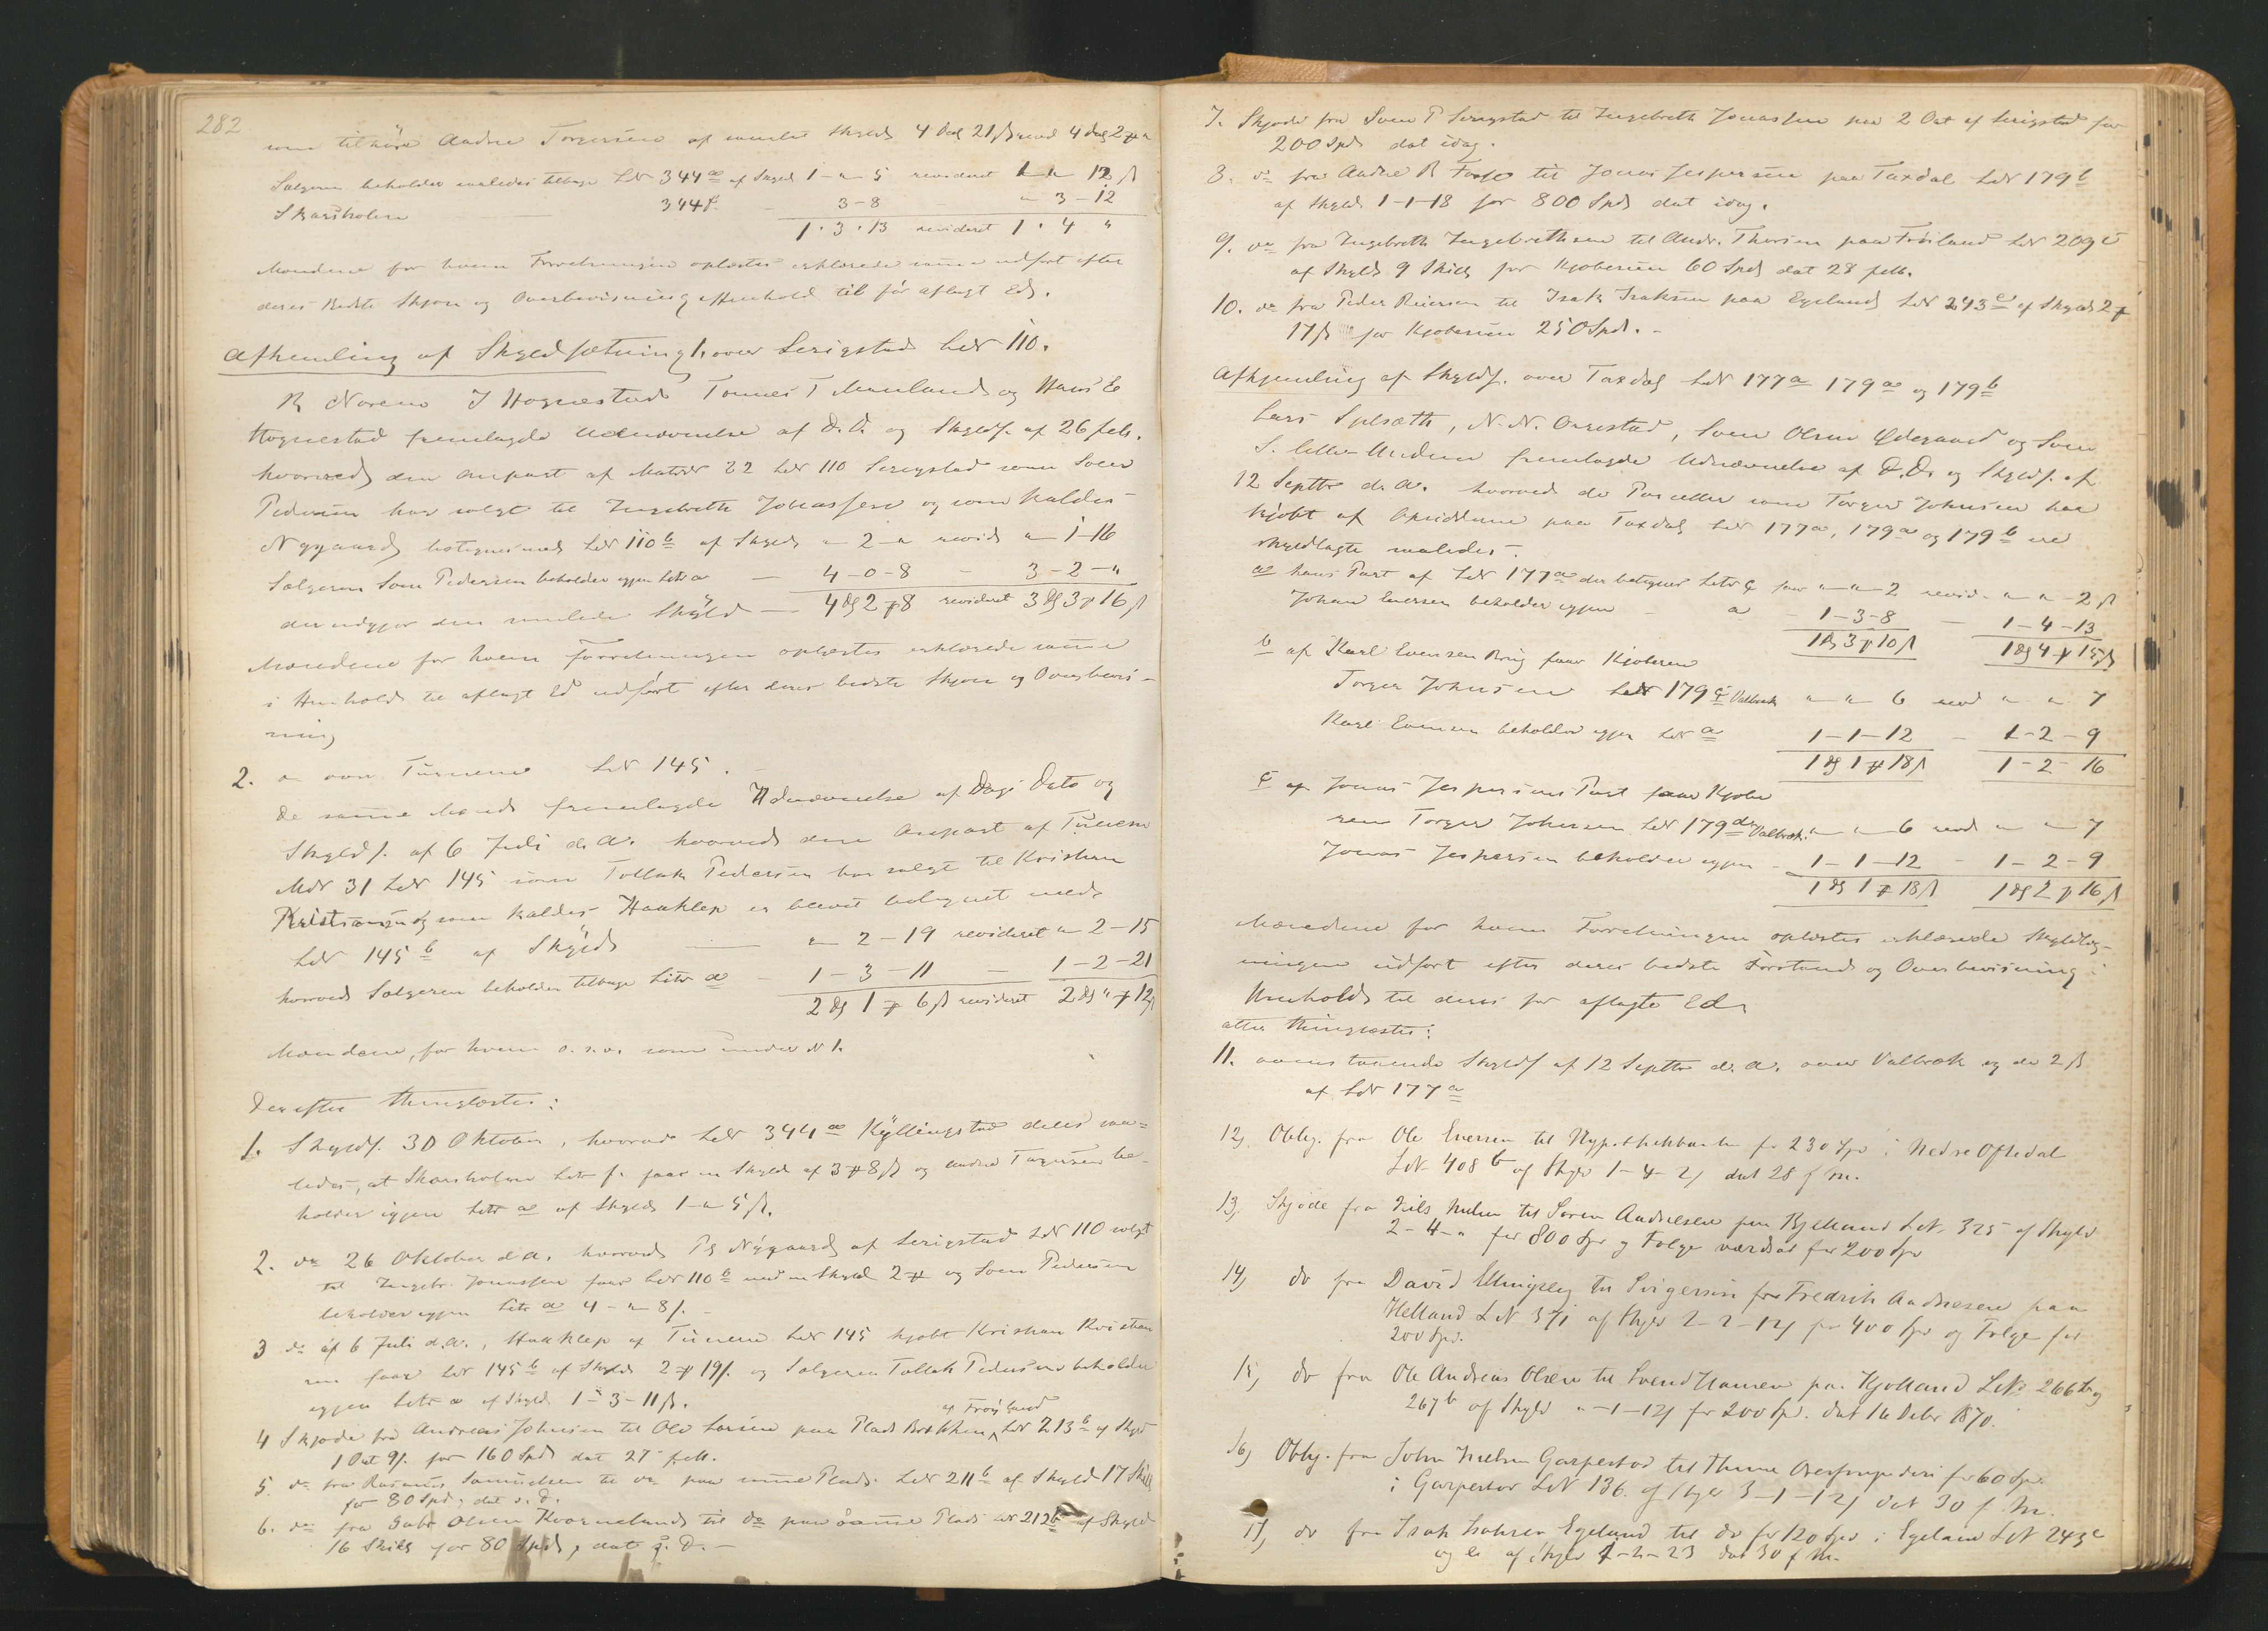 282
som tilhører Andrea Torgersen af samlet Skyld 4 Dal 21 ß revid 4 dal 2 # "
Sælgeren beholder saaledes tilbage LN 344 a af Skyld 1 - " 5 revideret 1 - " 12 ß
Skarsholm 344 f. 3-8 " 3-12
1 . 3 . 13 revideret 1 . 4 "
Mændene for hvem Forretningen oplæstes erklærede samme udført efter
deres bedste Skjøn og Overbevisning i Henhold til før aflagt Ed.
Afhemling af Skyldsætning 1. over Serigstad LN 110.
R Norem J Hognestad Tønnes T Mauland og Hans E
Hognestad fremlagde Udnævnelse af D.D. og Skyldf. af 26 feb.
hvorved den Anpart af Matr 22 LN 110 Serigstad som Soen
Pedersen har solgt til Ingebreth Jonassen og som kaldes
Nygaard betegnes med LN 110 b af Skyld " 2 " revid " 1-16
Sælgeren Soen Pedersen beholder igjen Litr a — 4-0-8 - 3-2-"
der udgjør den samlede Skyld — 4 D 2 # 8 revideret 3 D 3 # 16 ß
Mændene for hvem Forretningen oplæstes erklærede samme
i Henhold til aflagt Ed udført efter deres bedste Skjøn og Overbevis-
ning
2. do over Tunem LN 145.
De samme Mænd fremlagde Udnævnelse af Dags Dato og
Skyldf. af 6 Juli d.A. hvorved den Anpart af Tunem
MN 31 LN 145 som Tollak Pedersen har solgt til Kristian
Kristiansen og som kaldes Haaklep er blevet betegnet med
LN 145 b af Skyld — " 2-19 revideret " 2-15
hvorved Sælgeren beholder tilbage Litr a - 1-3-11 — 1-2-21
2 D 1 # 6 ß revideret 2 D " # 12 ß
Mændene, for hvem o.s.v. som under N 1.
Derefter thinglæstes:
1. Skyldf. 30 Oktober, hvorved LN 344 a Kyllingstad deles saa-
ledes, at Skarsholm Litr f. faar en Skyld af 3 # 8 ß og Andrea Torgersen be-
holder igjen Litr a af Skyld 1-" 5 ß.
2. do 26 Oktober d.A. hvorved Pl Nygaard af Serigstad LN 110 solgt
til Ingebr. Jonassen faar LN 110 b med en Skyld 2 # og Soen Pedersen
beholder igjen Litr a 4-" 8 ß. -
3 do af 6 Juli d.A., Haaklep af Tunem LN 145 kjøbt Kristian Kristian
sen faar LN 145 b af Skyld 2 # 19 ß. og Sælgeren Tollak Pedersen beholder
igjen Litr a af Skyld 1-3-11 ß.
af Frøyland
4 Skjøde fra Andreas Johnsen til Ole Larsen paa Plads Brekken LN 213 b af Skyld
1 Ort 9 ß. for 160 Spd dat 27 feb.
5. do fra Rasmus Samuelsen til do paa samme Plads LN 211 b af Skyld 17 Skill
for 80 Spd, dat s.d.
6. do fra Gabr Olsen Kvernelands til do paa samme Plads LN 212 b af Skyld
16 Skill for 80 Spd, dat s.d. -
7. Skjøde fra Soen P Serigstad til Ingebreth Jonassen paa 2 Ort af Serigstad for
200 Spd dat idag.
8. do fra Andrea R Fosse til Jonas Jespersen paa Taxdal LN 179 b
af Skyld 1-1-18 for 800 Spd dat idag.
9. do fra Ingebreth Ingebrethsen til Andr. Thorsen paa Frøiland LN 209 c
af Skyld 9 Skill for Kjøbesum 60 Spd dat 28 feb.
10. do fra Peder Reiersen til Isak Isaksen paa Egeland LN 243 e af Skyld 2 #
17 ß for Kjøbesum 250 Spd. -
Afhjemling af Skyldf. over Taxdal LN 177 a 179 a og 179 b
Lars Spleæth, N. N. Orrestad, Soen Olsen Ødegaard og Soen
S. Lille-Undem fremlagde Udnævnelse af D.D. og Skyldf. af
12 Septbr d.A. hvorved de Parceller som Torger Johnsen har
kjøbt af Opsidderne paa Taxdal LN 177 a, 179 a og 179 b ere
skyldlagte saaledes:
a hans Part af LN 177 a der betegnes Litr c faar " " 2 revid. " " 2 ß
Johan Evensen beholder igjen - a - 1-3-8 — 1-4-13
1 D 3 # 10 ß 1 D 4 # 15 ß
b af Karl Evensen Brug faar Kjøberen
Torger Johnsen LN 179 c Valbræk " " 6 revd " " 7
Karl Evensen beholder igjen LN a 1-1-12 - 1-2-9
1 D 1 # 18 ß 1-2-16
c af Jonas Jespersens Part faar Kjøbe
ren Torger Johnsen LN 179 d Valbræk " " 6 revd " " 7
Jonas Jespersen beholder igjen - 1-1-12 - 1-2-9
1 D 1 # 18 ß 1 D 2 # 16 ß
Mændene for hvem Forretningen oplæstes erklærede Skyldlæg-
ningen udført efter deres bedste Forstand og Overbevisning i
Henhold til deres før aflagte Ed.
atter thinglæstes:
11. ovenstaaende Skyldf af 12 Septbr d.A. over Valbræk og de 2 ß
af LN 177 a
12, Oblig. fra Ole Enersen til Hypothekbanken for 230 Spd i Nedre Oftedal
LN 408 b af Skyld 1-4-2 ß dat 28 f. M.
13, Skjøde fra Niels Nielsen til Søren Andresen paa Bjelland LN. 325 af Skyld
2-4-" for 800 Spd og Følge værdsat for 200 Spd
14, do fra David Ellingsen til Sirgersen for Fredrik Andresen paa
Helland LN 371 af Skyld 2-2-12 ß for 400 Spd og Følge for
200 Spd.
15, do fra Ole Andreas Olsen til Svend Hansen paa Hjelland LN. 266 b og
267 b af Skyld "-1-12 ß for 200 Spd. dat 16 Decbr 1870.
16, Oblig. fra John Nielsen Garpestad til Thime Overformynderi for 60 Spd.
i Garpestad LN 136. af Skyld 3-1-12 ß dat 30 f. M.
17, do fra Isak Isaksen Egeland til do for 120 Spd i Egeland LN 243 c
og e af Skyld 1-2-23 dat 30 f M.